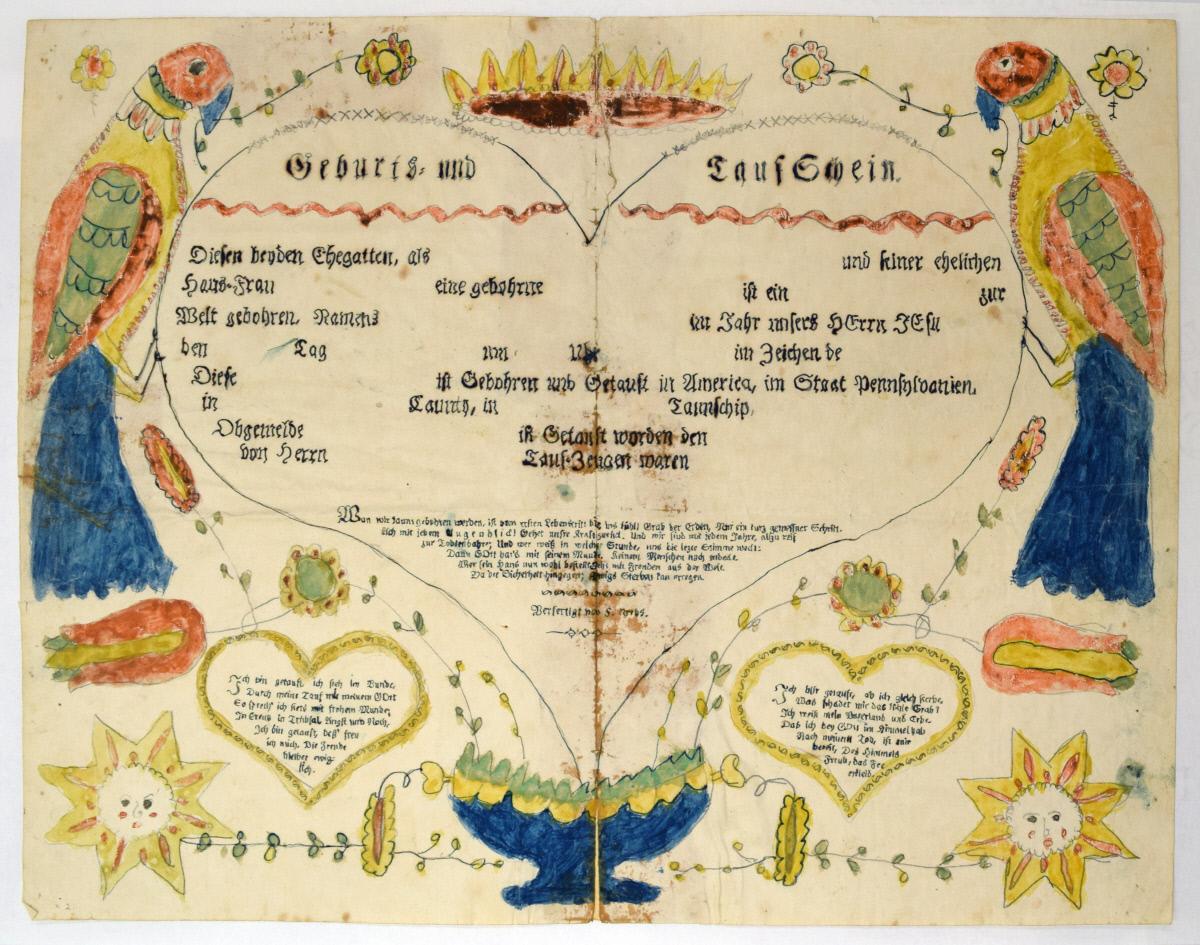 Geburts- und Tauf Schein.
Diesen beyden Ehegatten, als und seiner ehelichen
Haus-Frau eine gebohrne ist ein zur
Welt gebohren, Namens im Jahr unsers HErrn JESu
den Tag um Uhr im Zeichen de
Diese ist Gebohren und Getauft in America, im Staat Pennsylvanien,
in Caunty, in Taunschip,
Obgemelde ist Getauft worden den
von Herrn Tauf-Zeugen waren
Wan wir kaum gebohren werden, ist vom ersten Lebenstritt bis ins kühle Grab der Erden, Nur ein kurz gemeßner Schritt.
sich mit jedem Augenblick! Gehet unsre Kraft zurück, Und wir sind mit jedem Jahre, allzu reif
zur Todtenbahre; Und wer weiß in welcher Stunde, uns die lezte Stimme weckt:
Dann GOtt hat's mit seinem Munde, Keinem Menschen noch entdeckt.
Wer sein Haus nun wohl bestellt, geht mit Freuden aus der Welt.
Da die Sicherheit hingegen; Ewigs Sterben kan erregen.
Verfertigt von F. Krebs.
Ich bin getauft, ich steh im Bunde,
Durch meine Tauf mit meinem GOtt
So sprech ich stets mit frohem Munde,
In Creutz in Trübsal Angst und Noth,
Ich bin getauft, deß freu
ich mich, Die Freude
bleibet ewig-
lich.
Ich bin getaufe, ob ich gleich sterbe,
Was schadet mir das kühle Grab?
Ich weiß mein Vaterland und Erbe,
Das ich bey GOtt im Himmel hab
Nach meinem Tod, ist mir
bereit, Des Himmels
Freud, das Fey
erkleid.